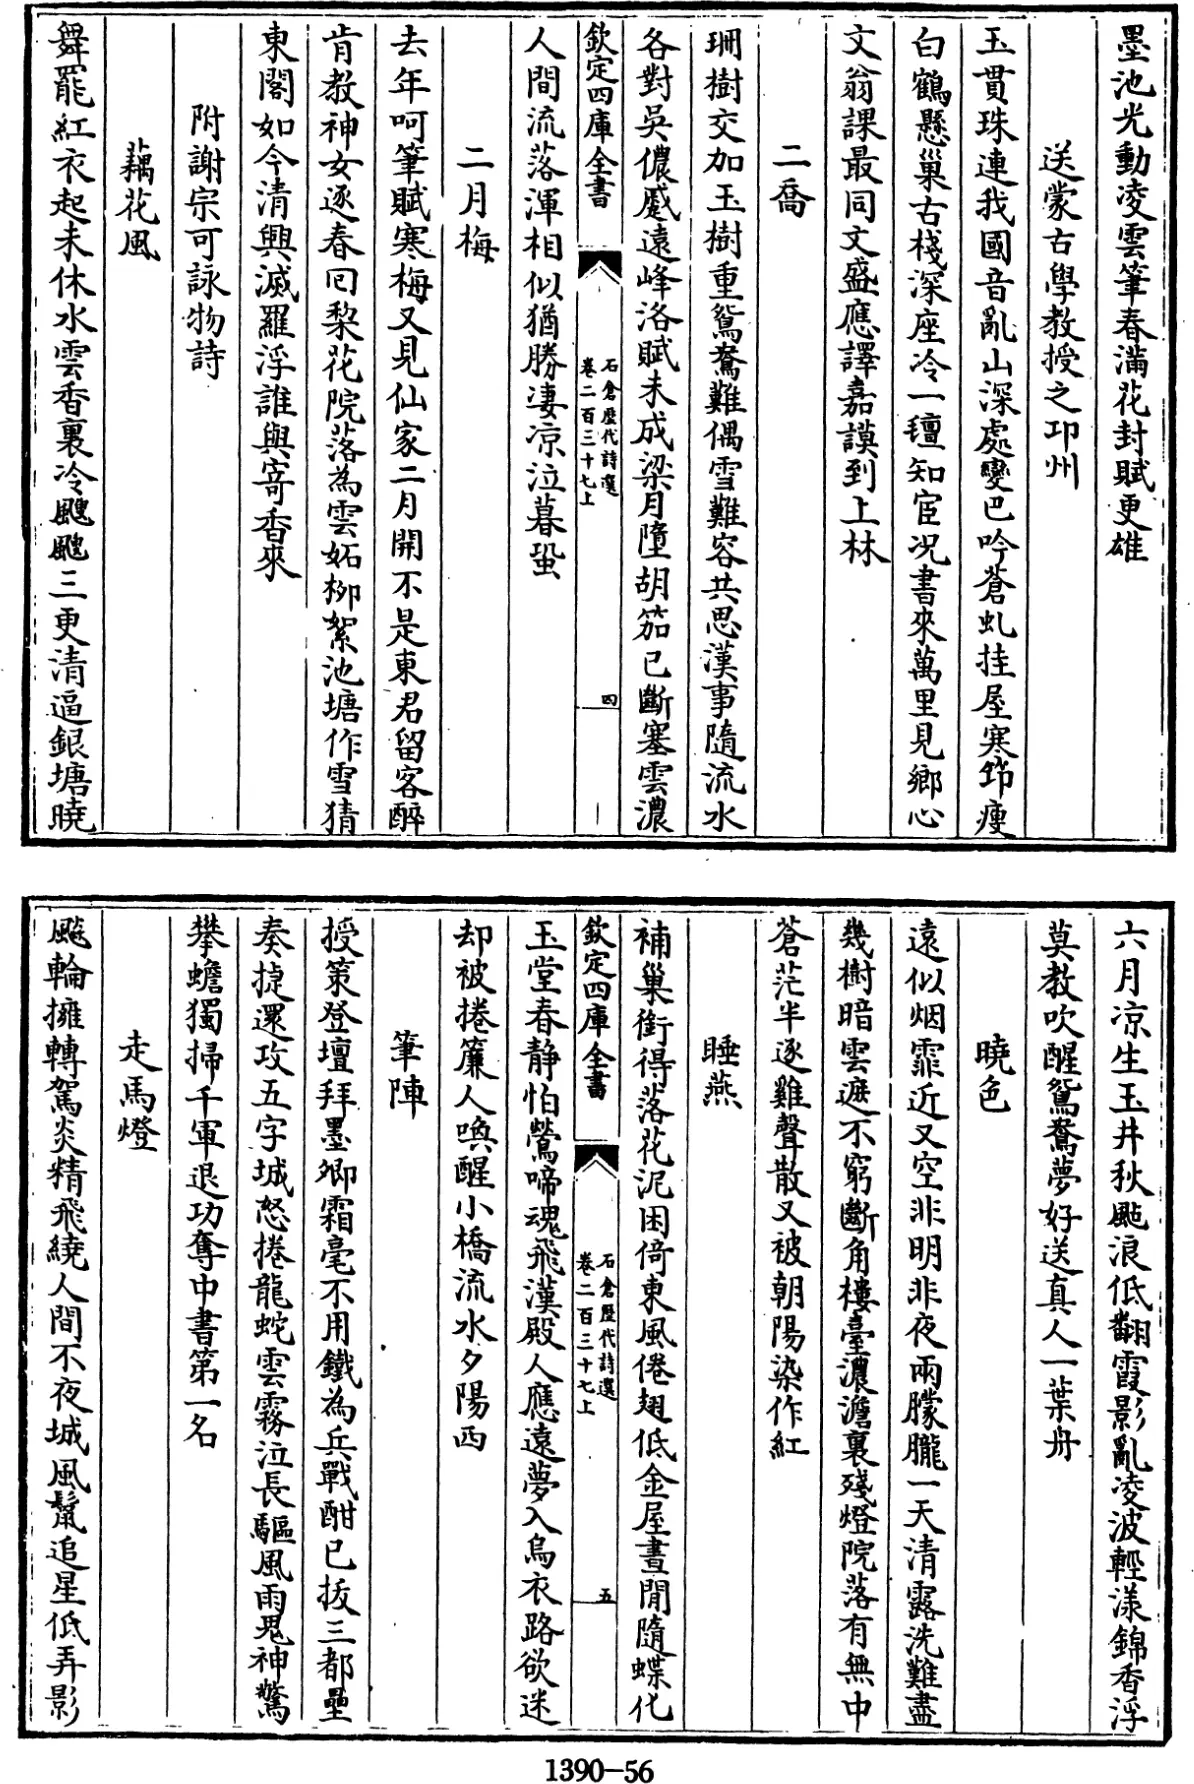 墨池光動凌雲筆春滿花封賦更雄
送蒙古學教授之邛州
玉貫珠連我國音亂山深處變巴吟蒼虬挂屋寒筇瘦
白鶴懸巢古棧深座冷一氊知宦况書來萬里見鄉心
文翁課最同文盛應譯嘉謨到上林
二喬
珊樹交加玉樹重鴛鴦難偶雪難容共思漢事隨流水
各對吳儂蹙遠峰洛賦未成梁月墮胡笳已斷塞雲濃
欽定四庫全書
石倉歷代詩選
卷二百三十七上
四
人間流落渾相似猶勝凄凉泣暮蛩
二月梅
去年呵筆賦寒梅又見仙家二月開不是東君留客醉
肯教神女逐春回梨花院落為雲妬柳絮池塘作雪猜
東閣如今清興減羅浮誰與寄香來
附謝宗可詠物詩
藕花風
舞罷紅衣起未休水雲香裏冷颼颼三更清逼銀塘曉
六月凉生玉井秋颭浪低翻霞影亂凌波輕漾錦香浮
莫教吹醒鴛鴦夢好送真人一葉舟
曉色
遠似烟霏近又空非明非夜兩朦朧一天清露洗難盡
幾樹暗雲遮不窮斷角樓臺濃澹裏殘燈院落有無中
蒼茫半逐雞聲散又被朝陽染作紅
睡燕
補巢銜得落花泥困倚東風倦翅低金屋晝閒隨蝶化
欽定四庫全書
石倉歷代詩選
卷二百三十七上
五
玉堂春静怕鶯啼魂飛漢殿人應遠夢入烏衣路欲迷
却被捲簾人喚醒小橋流水夕陽西
筆陣
授策登壇拜墨卿霜毫不用鐵為兵戰酣已拔三都壘
奏捷還攻五字城怒捲龍蛇雲霧泣長驅風雨鬼神驚
攀蟾獨掃千軍退功奪中書第一名
走馬燈
飈輪擁轉駕炎精飛繞人間不夜城風鬣追星低弄影
1390-56